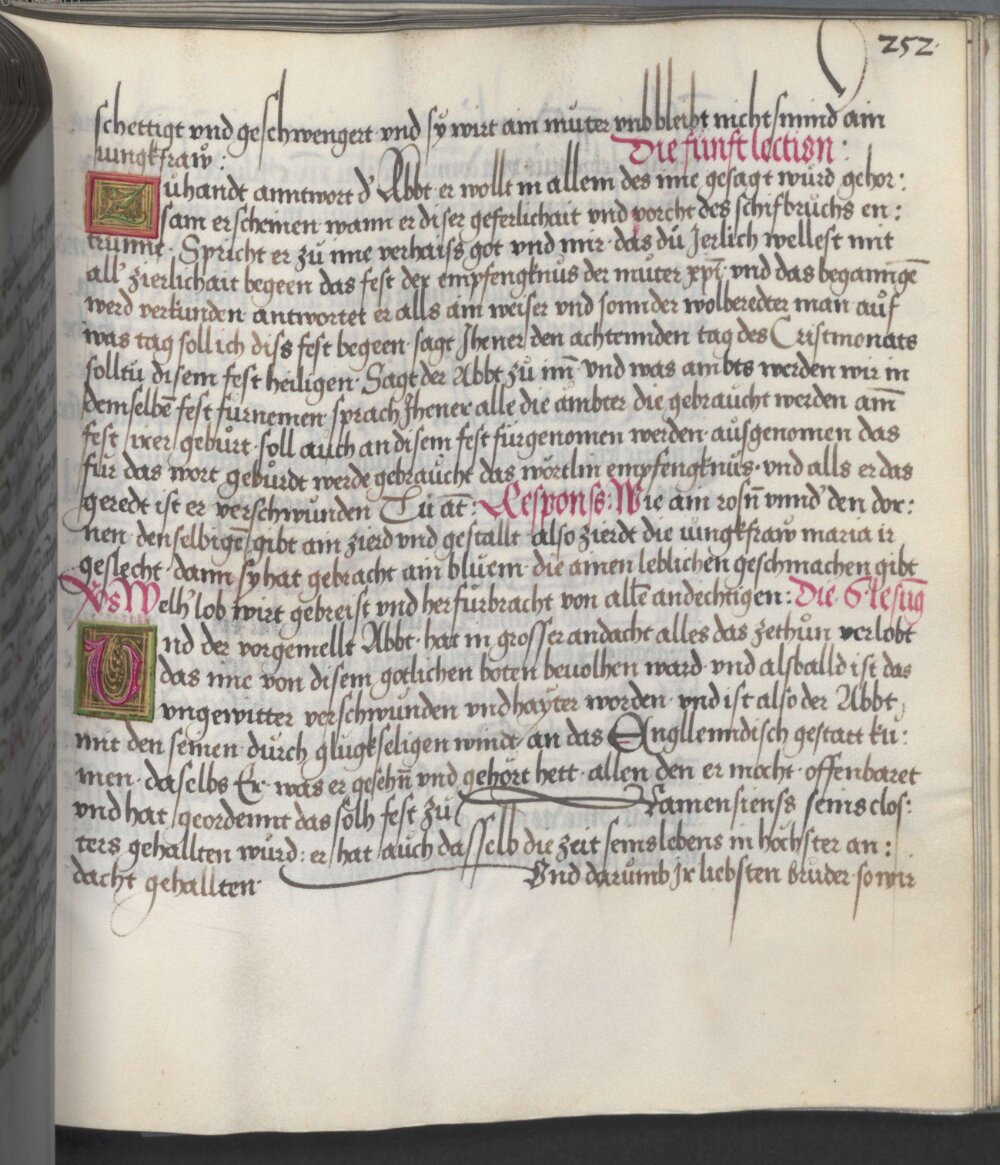 252
schettigt vnd geschwengert vnd sy wirt ain muter vnd bleibt nicht smnd ain
iungkfraw : Die funft lection :
Zuhandt anntwort d' Abbt er wollt in allem des ime gesagt wurd gehor :
sam erscheinen wann er diser geferlichait vnd vorcht des schifbruchs en :
trunne · Spricht er zu ime verhaiss got vnd mir · das du Jerlich wellest mit
all' zierlichait begeen das fest der empfengknus der muter xpi · vnd das begannge
werd verkunden · antwortet er alls ain weiser vnd sonnder wolberedter man auf
was tag soll ich diss fest begeen · sagt Jhener den achtennden tag des Cristmonats
solltu disem fest heiligen · Sagt der Abbt zu im̄ · vnd was ambts werden wir in
demselbē fest furnemen · sprach Jhener alle die ambter die gebraucht werden am̄
fest irer geburt · soll auch an disem fest furgenomen werden · ausgenomen das
fur das wort geburdt werde gebraucht das wortlin empfengknus · vnd alls er das
geredt ist er verschwunden Tu at̄ : Respons : Wie am rosn̄ vnnd' den dor :
nen · denselbigē gibt ain zierd vnd gestallt · also zierdt die iungkfraw maria ir
geslecht · dann sy hat gebracht ain bluem · die ainen leblichen geschmachen gibt
Vs Welh' lob wirt gebreist vnd herfurbracht von allē andechtigen : Die 6 · lesūg
Vnd der vorgemellt Abbt · hat in grosser andacht alles das zethun verlobt
das ime von disem gotlichen boten beuolhen ward · vnd alsballd ist das
vngewitter verschwunden vnd hayter worden · vnd ist also der Abbt ,
mit den seinen durch glugkseligen windt an das Englleenndisch gestatt ku :
men · daselbs Er · was er gesehn̄ vnd gehört hett · allen den er mocht · offenbaret
vnd hat geordennt das solh fest zu Ramensienss seins clos :
ters gehallten wurd : er hat auch dasselb die zeit seins lebens in höchster an :
dacht gehallten · Vnd darumb Jr liebsten bruder · so wir